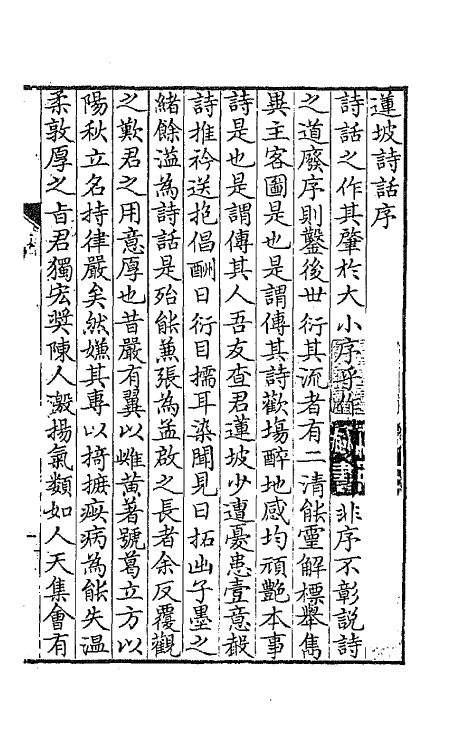 蓮坡詩話序
詩話之作其肇於大小序乎作 非序不彰說詩
之道廢序則鑿後世衍其流者有二清能靈解標舉雋
異主客圖是也是謂傳其詩歡塲醉地感均頑艷本事
詩是也是謂傳其人吾友查君蓮坡少遭憂患壹意殽
詩推衿送抱倡酬日衍目擩耳染聞見日拓幽子墨之
緒餘溢為詩話是殆能兼張為孟啟之長者余反覆觀
之歎君之用意厚也昔嚴有翼以雌黃著號葛立方以
陽秋立名持律嚴矣然嫌其專以掎摭瘢病為能失溫
柔敦厚之旨君獨宏獎陳人激揚氣類如人天集會有